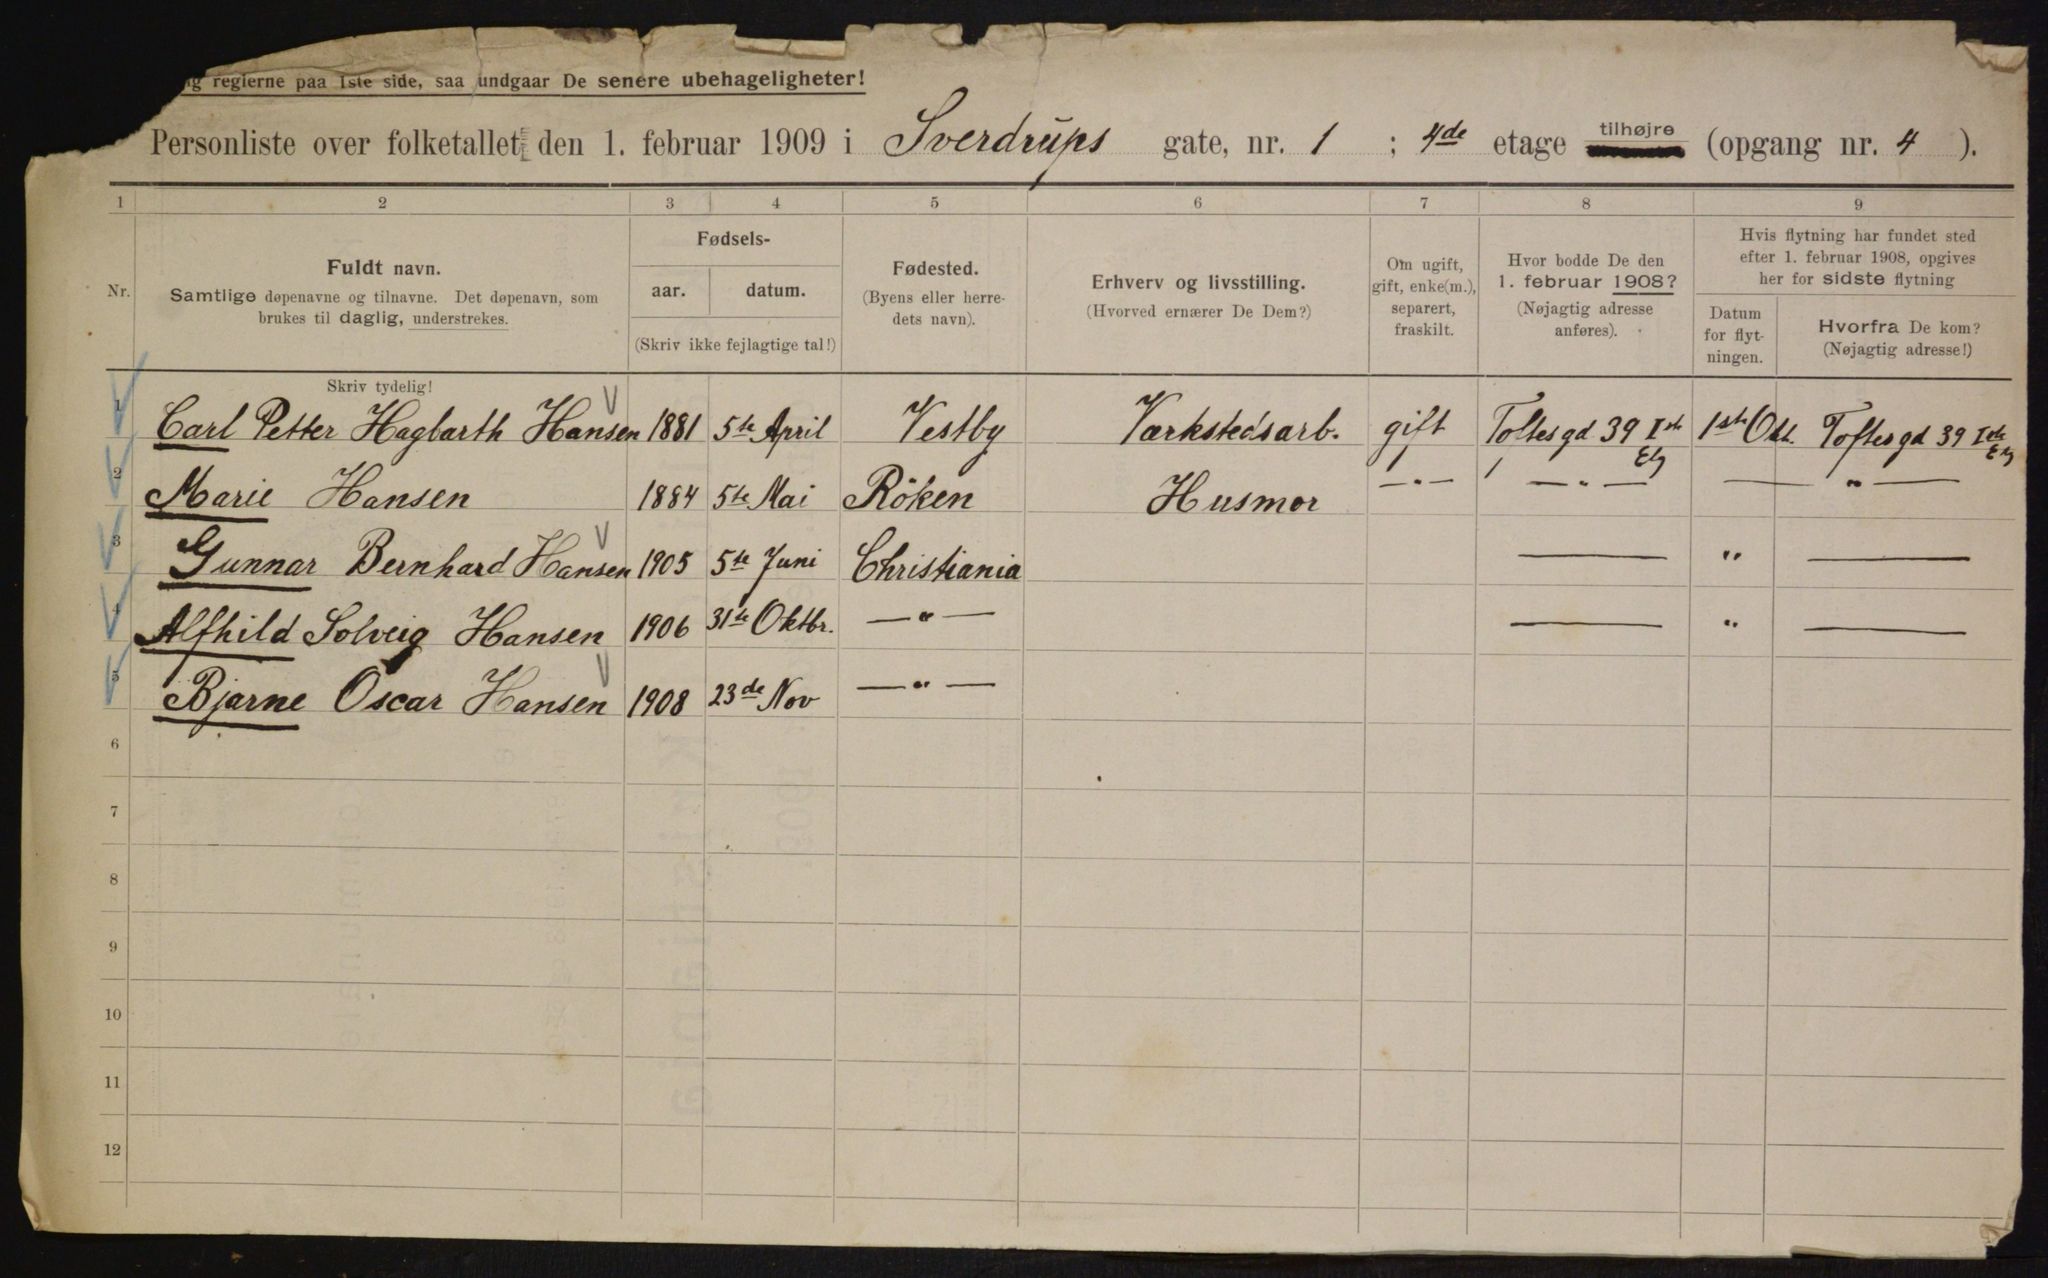 regjerne paa 1ste side, saa undgaar De senere ubehageligheter!
Personliste over folketallet den 1. februar 1909 i Sverdrups gate, nr. 1 ; 4de etage tilhøjre (opgang nr. 4 ).
1 2 3 4 5 6 7 8 9
Nr.
Fuldt navn.
Samtlige døpenavne og tilnavne. Det døpenavn, som
brukes til daglig, understrekes.
Skriv tydelig!
Fødsels-
aar. datum.
(Skriv ikke fejlagtige tal!)
Fødested.
(Byens eller herre-
dets navn).
Erhverv og livsstilling.
(Hvorved ernærer De Dem?)
Om ugift,
gift, enke(m.),
separert,
fraskilt.
Hvor bodde De den
1. februar 1908?
(Nøjagtig adresse
anføres).
Hvis flytning har fundet sted
efter 1. februar 1908, opgives
her for sidste flytning
Datum
for flyt-
ningen.
Hvorfra De kom?
(Nøjagtig adresse!)
1 Carl Petter Hagbarth Hansen 1881 5te April Vestby Værkstedsarb. gift Toftesgd 39 I st Etg 1ste Okt. Toftesgd 39 I ste Etg
2 Marie Hansen 1884 5te Mai Röken Husmor —"— —"— — " —
3 Gunnar Bernhard Hansen 1905 5te Juni Christiania — " —
4 Alfhild Solveig Hansen 1906 31te Oktbr. —"— — " —
5 Bjarne Oscar Hansen 1908 23de Nov —"—
6
7
8
9
10
11
12